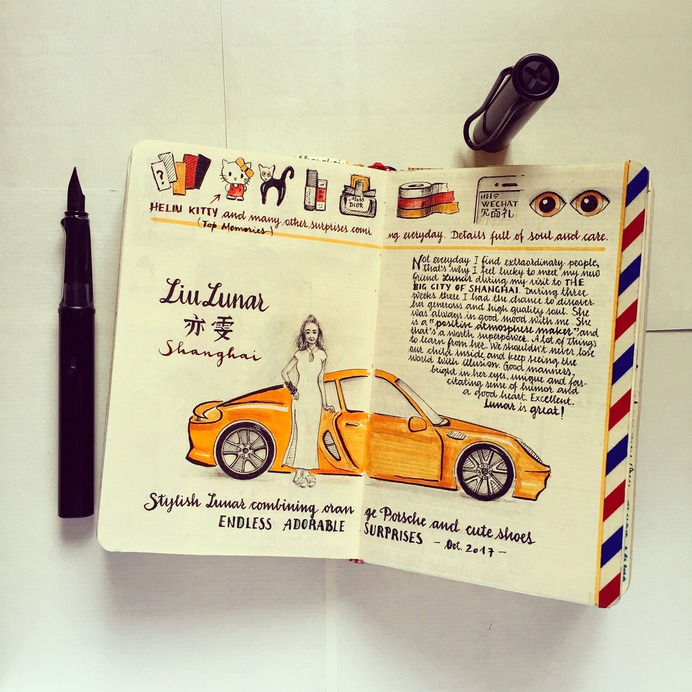 ?
MISS DIOR
WECHAT
写面礼
HELLO KITTY and many other surprises comi
ng everyday. Details full of soul and care.
(Top Memories)
Liu Lunar
亦雯
Shanghai
Not everyday I find extraordinary people,
that's why I feel lucky to meet my new
friend Lunar during my visit to THE
BIG CITY OF SHANGHAI. During three
weeks there I had the chance to discover
her generous and high quality soul. She
was always in good mood with me. She
is a "positive atmosphere maker" and
that's a worth superpower. A lot of things
to learn from her. We shouldn't never lose
our child inside and keep seeing the
world with illusion. Good manners,
bright in her eyes, unique and fas-
citating sense of humor and
a good heart. Excellent.
Lunar is great!
Stylish Lunar combining oran
ge Porsche and cute shoes
ENDLESS ADORABLE
SURPRISES - Oct. 2017 -